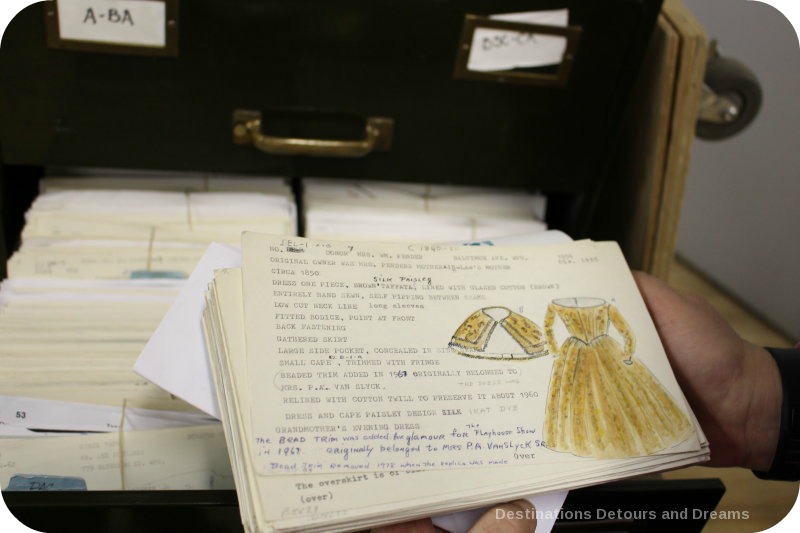 A-BA
C 1840-50
NO. DONOR MRS. WM. PENDER BALTIMORE AVE. WPG.
ORIGINAL OWNER WAS MRS. PENDERS MOTHER-IN-LAW'S MOTHER
CIRCA 1850
SILK PAISLEY
DRESS ONE PIECE, BROWN TAFFATA, LINED WITH GLAZED COTTON (BROWN)
ENTIRELY HAND SEWN, SELF PIPPING BETWEEN SEAMS
LOW CUT NECK LINE long sleeves
FITTED BODICE, POINT AT FRONT
BACK FASTENING
GATHERED SKIRT
LARGE SIDE POCKET, CONCEALED IN
SMALL CAPE , TRIMMED WITH FRINGE
(BEADED TRIM ADDED IN 1967 ORIGINALLY BELONGED TO)
MRS. P.A. VAN SLYCK.
RELINED WITH COTTON TWILL TO PRESERVE IT ABOUT 1960
DRESS AND CAPE PAISLEY DESIGN SILK IKAT DYE
GRANDMOTHER'S EVENING DRESS
The BEAD TRIM was added for glamour for The Playhouse Show
in 1967. Originally belonged to MRS P.A. VANSLYCK SR.
Bead Trim Removed 1978 when the replica was made over
The overskirt is of
(over)
53
Destinations Detours and Dreams